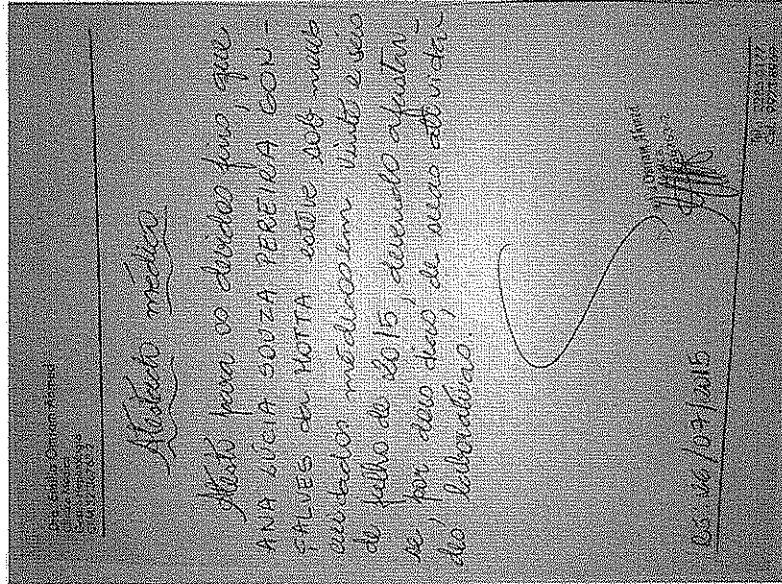 Atestado médico
Atesto para os devidos fins, que
ANA LÚCIA SOUZA PEREIRA GON-
ÇALVES da MOTTA esteve sob meus
cuidados médicos em vinte e seis
de julho de 2015, devendo afastar-
se por dois dias, de suas ativida-
des laborativas.
26/07/2015